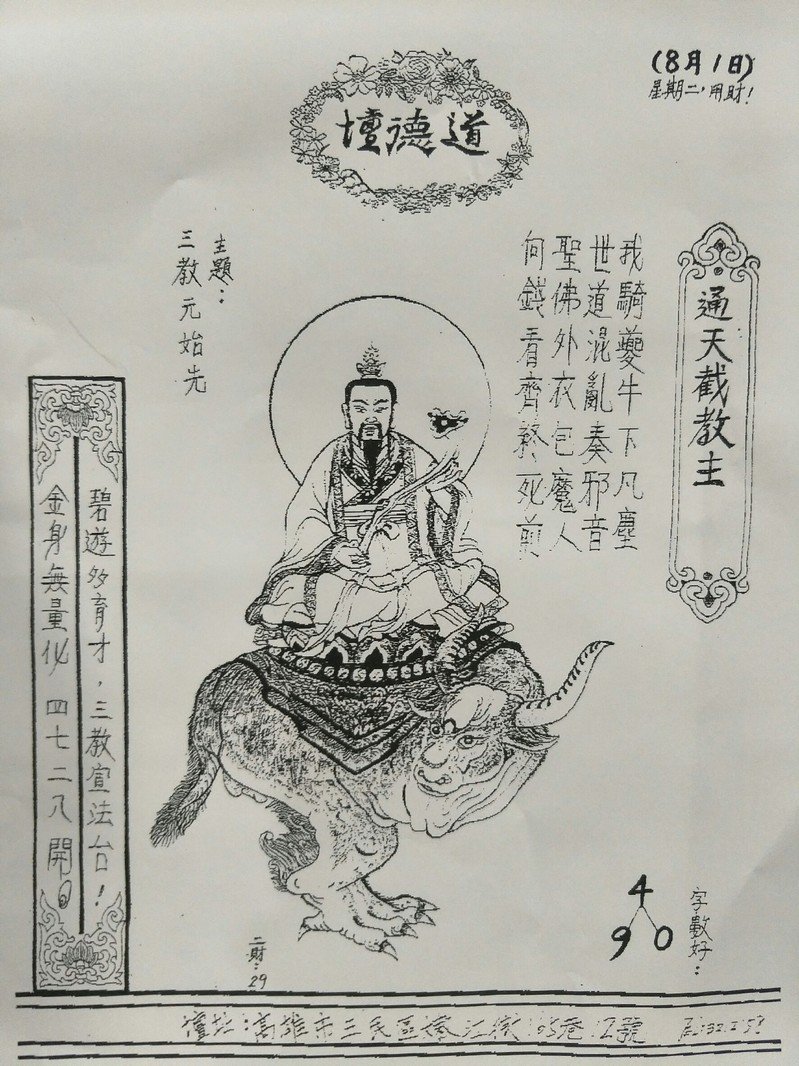 (8月1日)
星期二，用財！
道德壇
通天截教主
我騎夔牛下凡塵
世道混亂奏邪音
聖佛外衣包魔人
向錢看齊終死前
主題：
三教元始先
碧遊多育才，三教宣法台！
金身無量化 四七二八開
字數好：
4
9 0
二財：29
壇址：高雄市三民區 165巷12號